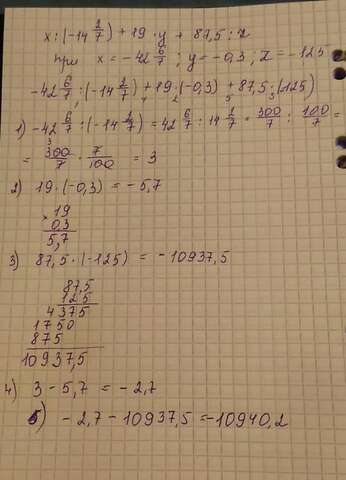 x : (-14 2/7) + 19 · y + 87,5 : z
при x = -42 6/7 ; y = -0,3 ; z = -125
-42 6/7 : (-14 2/7) + 19 · (-0,3) + 87,5 · (125)
1) -42 6/7 : (-14 2/7) = 42 6/7 : 14 2/7 = 300/7 : 100/7 =
= 300/7 · 7/100 = 3
3
2) 19 · (-0,3) = -5,7
× 19
0,3
5,7
3) 87,5 · (-125) = -10937,5
87,5
125
4375
1750
875
10937,5
4) 3 - 5,7 = -2,7
5) -2,7 - 10937,5 = -10940,2